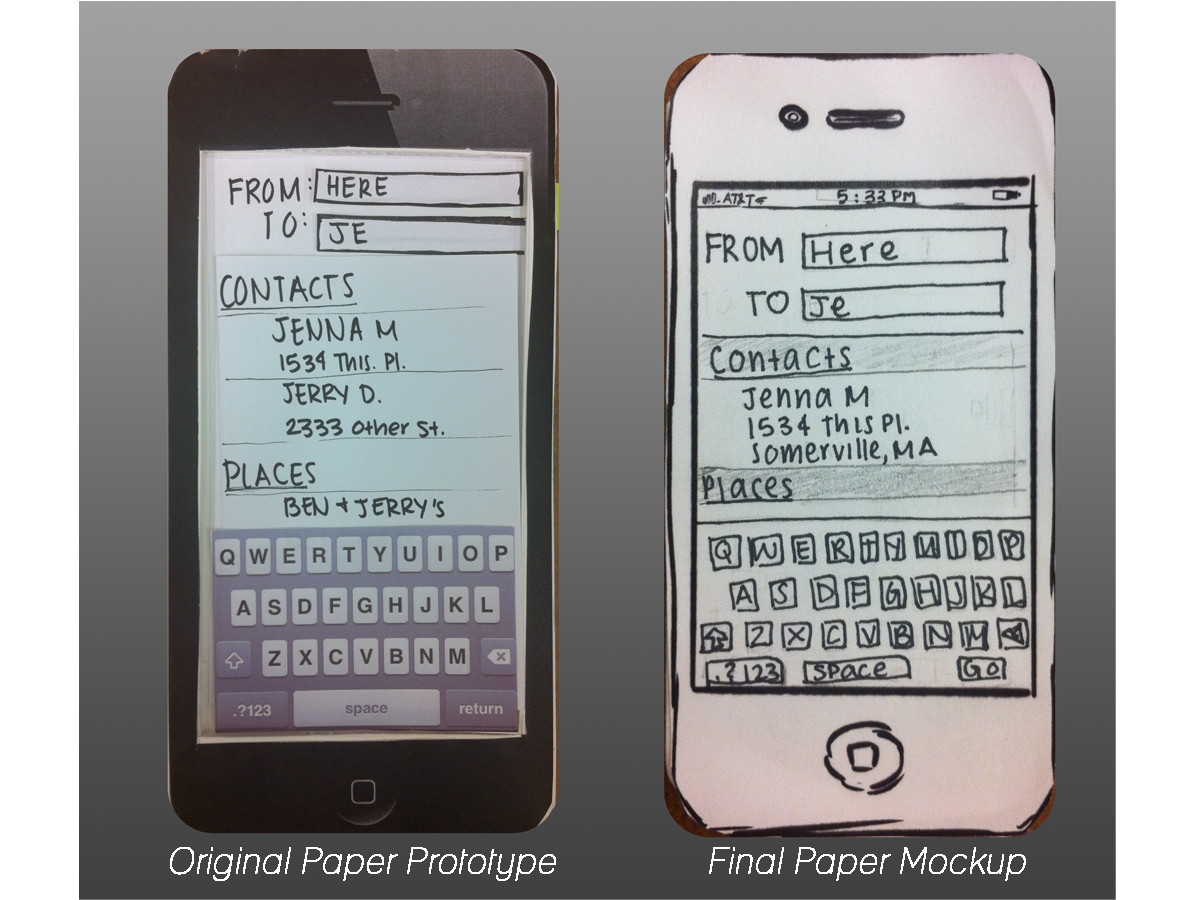 FROM: HERE
TO: JE
CONTACTS
JENNA M
1534 This. Pl.
JERRY D.
2333 Other St.
PLACES
BEN + JERRY'S
Q W E R T Y U I O P
A S D F G H J K L
Z X C V B N M
.?123 space return
Original Paper Prototype
AT&T 5:33 PM
FROM Here
TO Je
Contacts
Jenna M
1534 This Pl.
Somerville, MA
Places
Q W E R T Y U I O P
A S D F G H J K L
Z X C V B N M
.?123 space Go
Final Paper Mockup